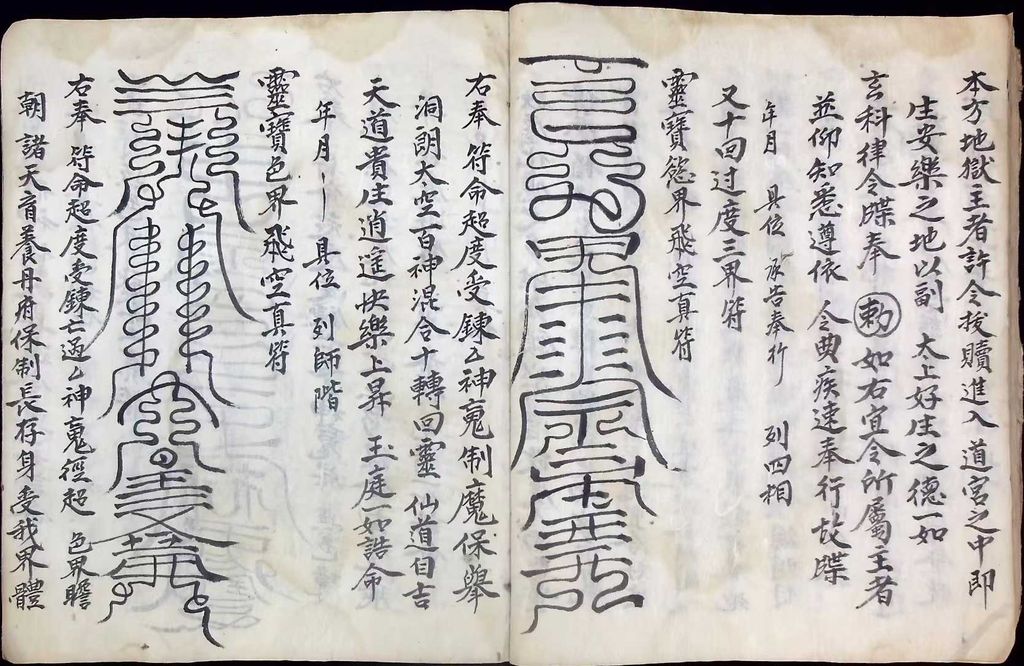 本方地獄主者許令拔贖進入 道宮之中即
生安樂之地以副 太上好生之德一如
玄科律令牒奉 勅 如右宜令所屬主者
並仰知悉遵依 令典疾速奉行故牒
年月 具位 承告奉行 列四相
又十回过度三界符
靈寶慾界飛空真符
右奉 符命超度受鍊亡神䰟制魔保舉
洞朗大空百神混合十轉回靈 仙道自吉
天道貴生逍遥快樂上昇 玉庭一如誥命
年月 具位 列師階
靈寶色界飛空真符
右奉 符命超度受鍊亡過亡神䰟徑超 色界瞻
朝 諸天育養丹府保制長存身受我界體